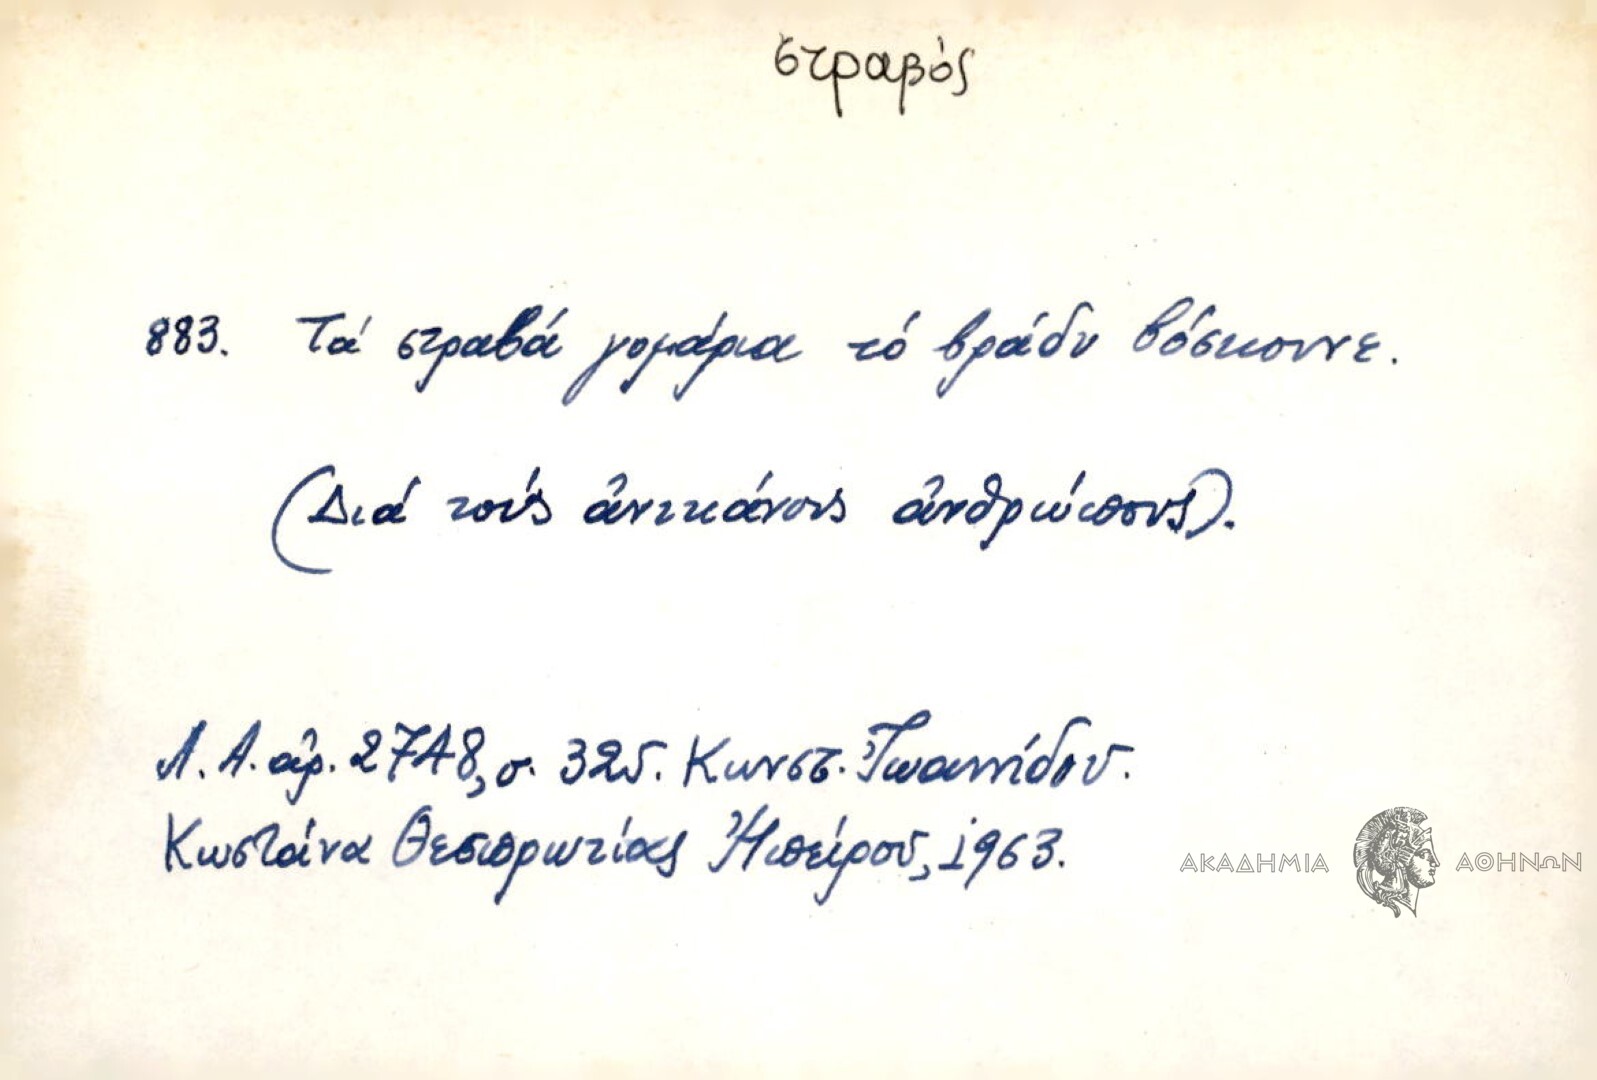 στραβός
883. Τά στραβά γομάρια τό βράδυ βόσκουνε.
(Διά τούς ἀνικάνους ἀνθρώπους).
Λ.Α. ἀρ. 2748, σ. 325. Κωνστ. Ἰωαννίδου.
Κωστάνα Θεσπρωτίας Ἠπείρου, 1963.
ΑΚΑΔΗΜΙΑ ΑΘΗΝΩΝ